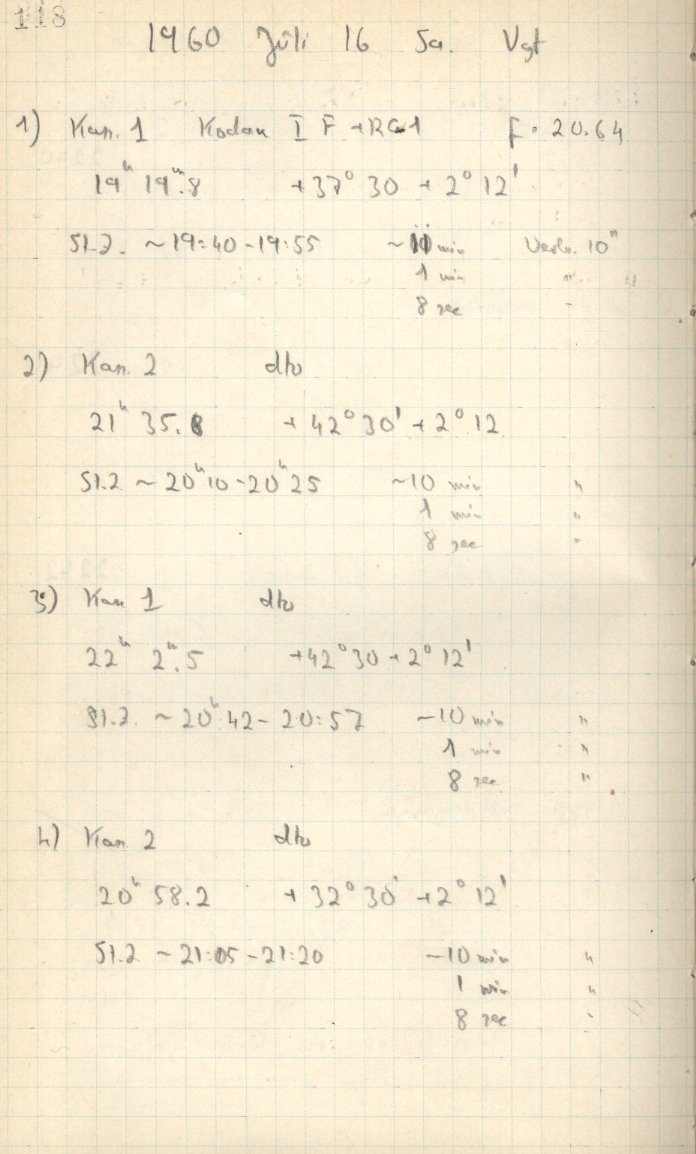 118
1960 Juli 16 Sa. Vgt
1) Kas. 1 Kodak I F + RG1 f. 20.64
19h 19m.8 +37° 30 + 2° 12'
St.Z. ~ 19:40 - 19:55 ~10 min Verbr. 10m
1 min " "
8 sec "
2) Kas. 2 dto
21h 35.8 + 42° 30' + 2° 12
St.Z ~ 20h 10 - 20h 25 ~10 min "
1 min "
8 sec "
3) Kas 1 dto
22h 2m.5 +42° 30 + 2° 12'
St.Z. ~ 20h 42 - 20:57 ~10 min "
1 min "
8 sec "
4) Kas 2 dto
20h 58.2 + 32° 30' + 2° 12'
St.Z ~ 21:05 - 21:20 ~10 min "
1 min "
8 sec "